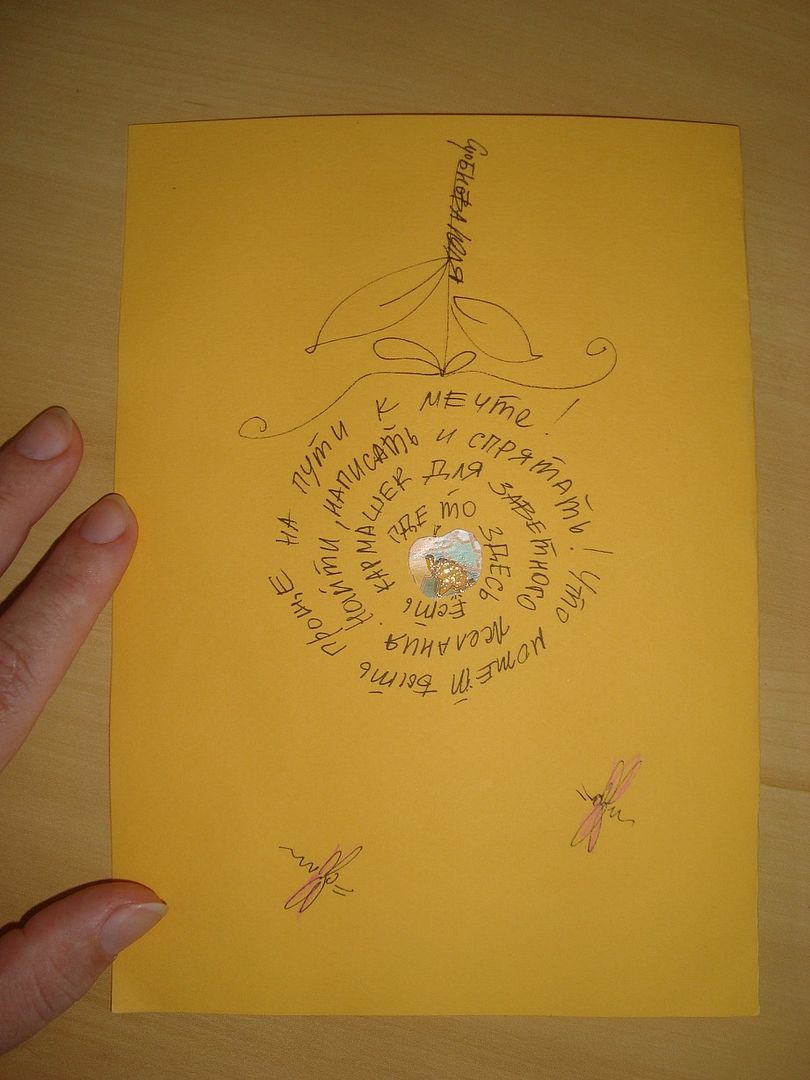 ЮЛЯ
ГДЕ ТО ЗДЕСЬ ЕСТЬ КАРМАШЕК ДЛЯ ЗАВЕТНОГО ЖЕЛАНИЯ. НАЙТИ, НАПИСАТЬ И СПРЯТАТЬ! ЧТО МОЖЕТ БЫТЬ ПРОЩЕ НА ПУТИ К МЕЧТЕ!